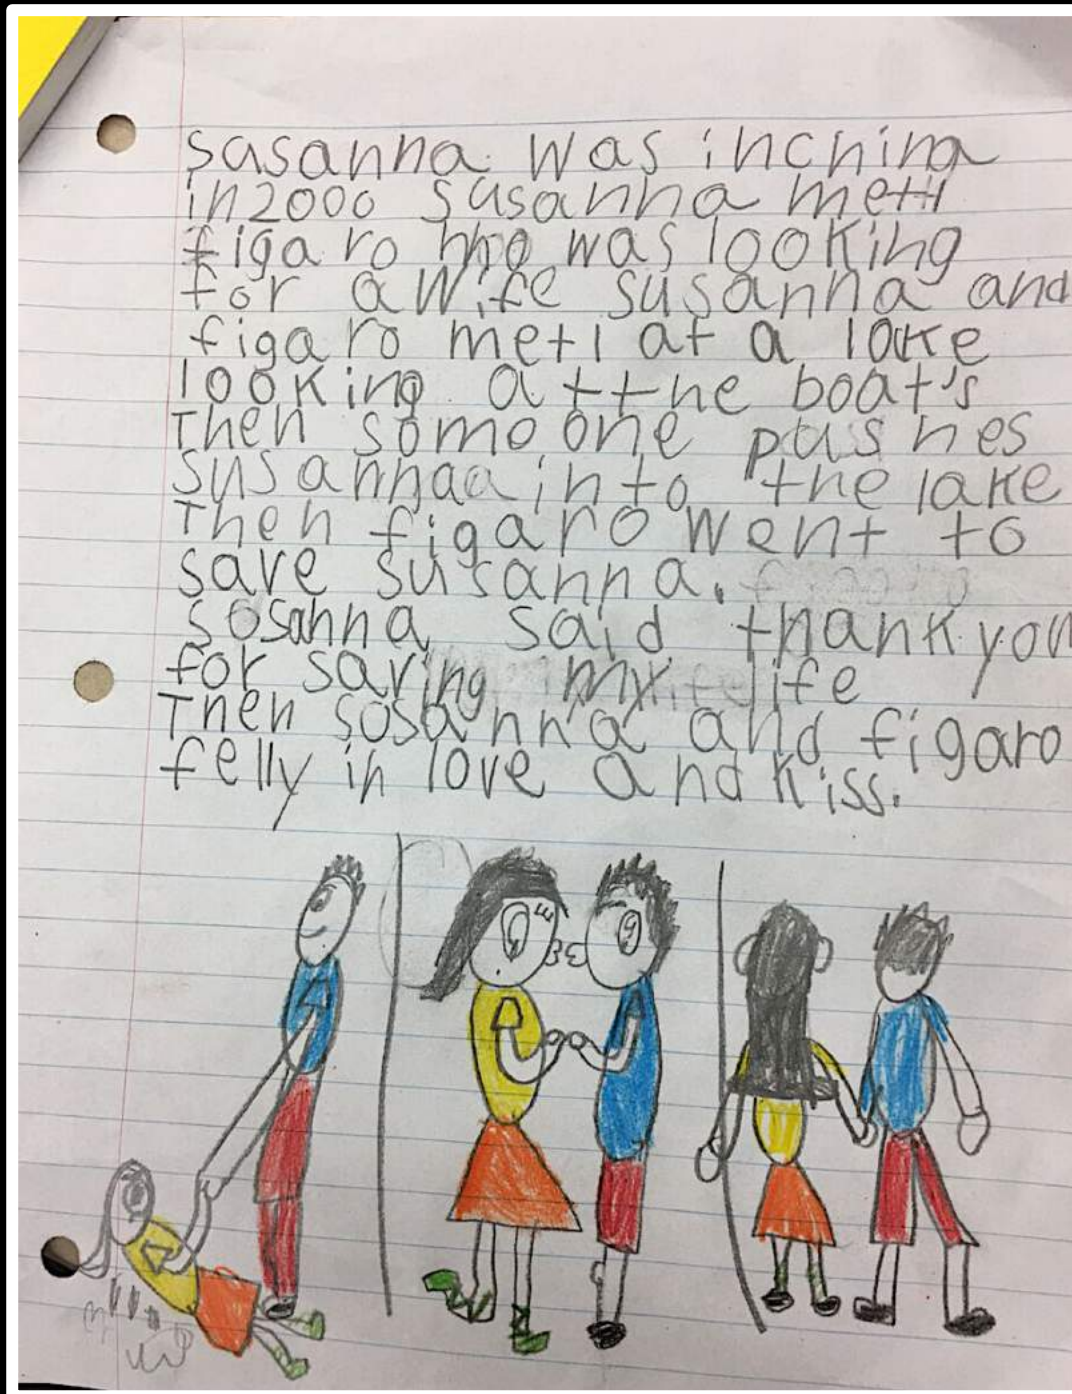 sasanna was inchina
in2000 susanna mettl
figaro who was looking
for a wife susanna and
figaro metl at a lake
looking at the boat's
Then somoone pushes
susannaa into the lake
Then figaro went to
save susanna.
sosanna said thank you
for saving my life
Then sosanna and figaro
felly in love and kiss.